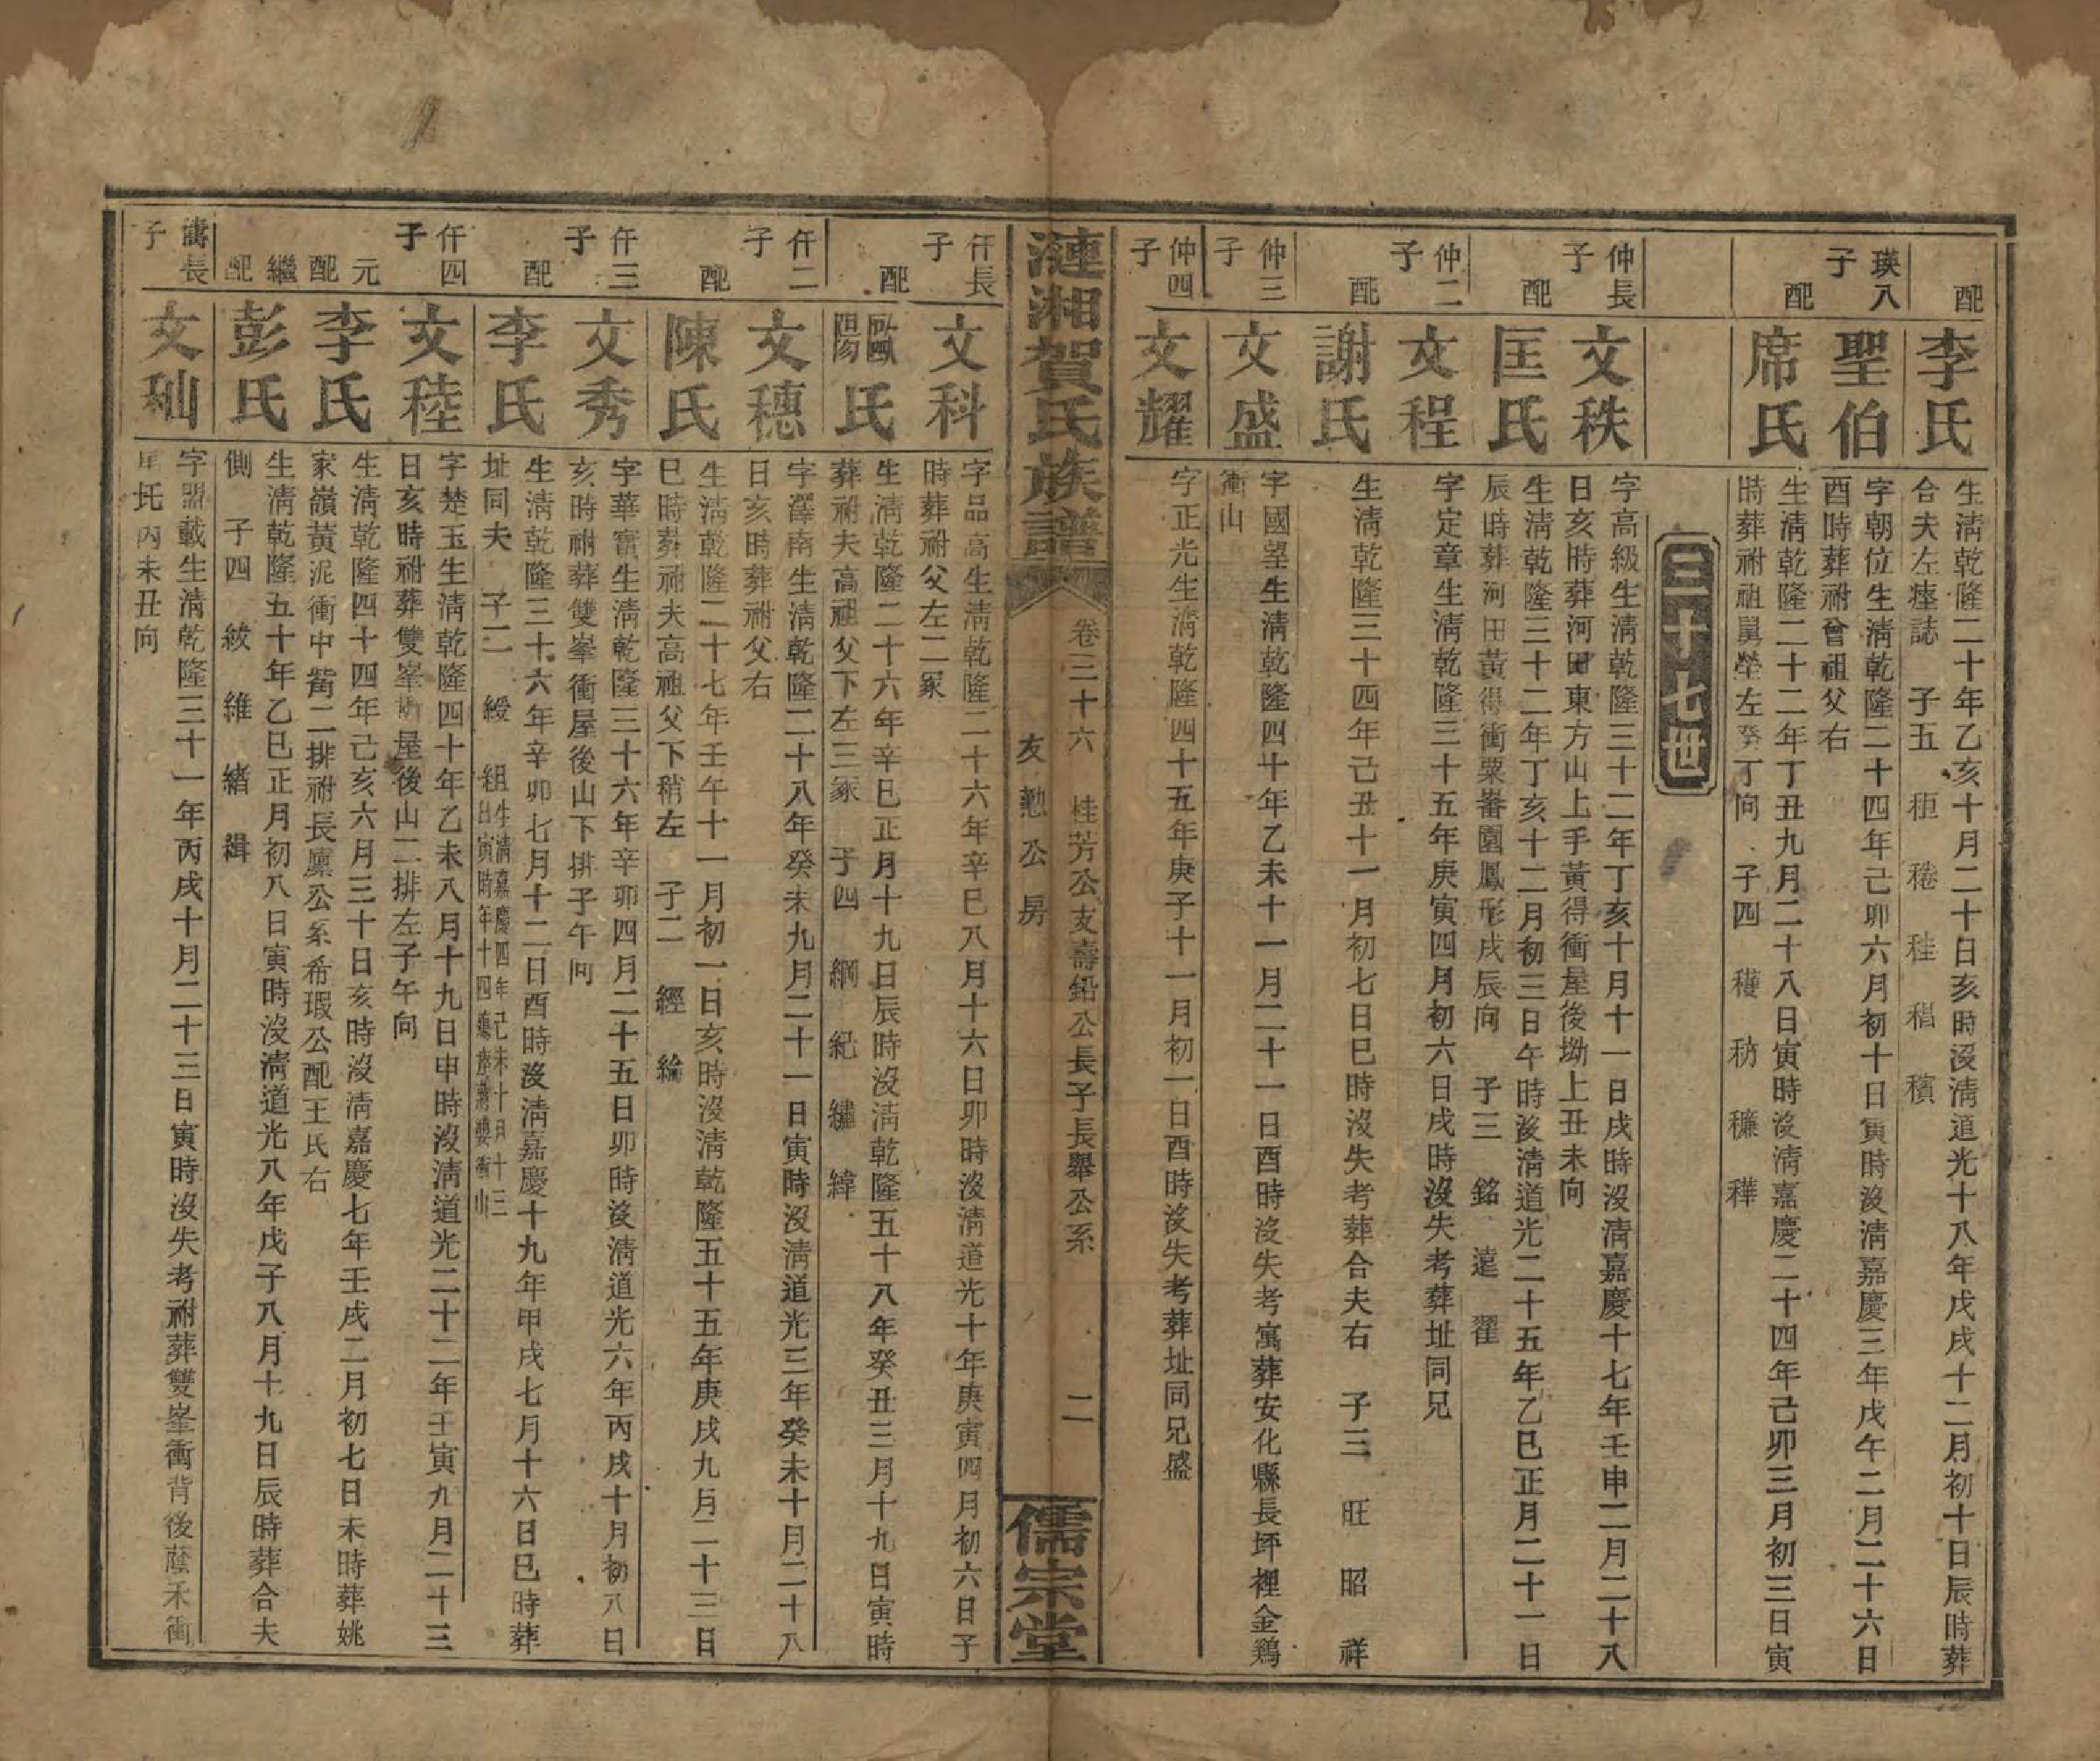 配
李氏
生淸乾隆二十年乙亥十月二十日亥時沒淸道光十八年戊戌十二月初十日辰時葬
合夫左瘞誌　子五　秬　稑　稑　稑　穦
瑛八子
聖伯
字朝位生淸乾隆二十四年己卯六月初十日寅時沒淸嘉慶三年戊午二月二十六日
酉時葬祔曾祖父右
配
席氏
生淸乾隆二十二年丁丑九月二十八日寅時沒淸嘉慶二十四年己卯三月初三日寅
時葬祔祖塋左癸丁向　子四　穫　䅭　穅　稺
三十七世
仲長子
文秩
字高級生淸乾隆三十二年丁亥十月十一日戌時沒淸嘉慶十七年壬申二月二十八
日亥時葬河田東方山上手黃得衝屋後坳上丑未向
配
匡氏
生淸乾隆三十二年丁亥十二月初三日午時沒淸道光二十五年乙巳正月二十一日
辰時葬河田黃得衝粟䅨園鳳形戌辰向　子三　銘　遠　翟
仲二子
文程
字定章生淸乾隆三十五年庚寅四月初六日戌時沒失考葬址同兄
配
謝氏
生淸乾隆三十四年己丑十一月初七日巳時沒失考葬合夫右　子三　旺　昭　祥
仲三子
文盛
字國望生淸乾隆四十年乙未十一月二十一日酉時沒失考寓葬安化縣長坪裡金鷄
衝山
仲四子
文耀
字正光生淸乾隆四十五年庚子十一月初一日酉時沒失考葬址同兄盛
漣湘賀氏族譜
卷三十六　桂芳公支壽鉛公長子長舉公系　二
友懃公房
儒宗堂
仟長子
文科
字品高生淸乾隆二十六年辛巳八月十六日卯時沒淸道光十年庚寅四月初六日子
時葬祔父左二冢
配
歐陽氏
生淸乾隆二十六年辛巳正月十九日辰時沒淸乾隆五十八年癸丑三月十九日寅時
葬祔夫高祖父下左三冢　子四　綱　紀　繡　緯
仟二子
文穗
字澤南生淸乾隆二十八年癸未九月二十一日寅時沒淸道光三年癸未十月二十八
日亥時葬祔父右
配
陳氏
生淸乾隆二十七年壬午十一月初一日亥時沒淸乾隆五十五年庚戌九月二十三日
巳時葬祔夫高祖父下稍左　子二　經　綸
仟三子
文秀
字華實生淸乾隆三十六年辛卯四月二十五日卯時沒淸道光六年丙戌十月初八日
亥時祔葬雙峯衝屋後山下排子午向
配
李氏
生淸乾隆三十六年辛卯七月十二日酉時沒淸嘉慶十九年甲戌七月十六日巳時葬
址同夫　子二　綬　組　生淸嘉慶四年己未十月十三
日寅時年十四殤葬衝山
仟四子
文稑
字楚玉生淸乾隆四十年乙未八月十九日申時沒淸道光二十二年壬寅九月二十三
日亥時祔葬雙峯衝屋後山二排左子午向
元配
李氏
生淸乾隆四十四年己亥六月三十日亥時沒淸嘉慶七年壬戌二月初七日未時葬姚
家嶺黃泥衝中嘴二排祔長廩公系希瑕公配王氏右
繼配
彭氏
生淸乾隆五十年乙巳正月初八日寅時沒淸道光八年戊子八月十九日辰時葬合夫
側　子四　紋　維　緒　緝
譸長子
文秈
字盟載生淸乾隆三十一年丙戌十月二十三日寅時沒失考祔葬雙峯衝背後蔭禾衝
坵內未丑向